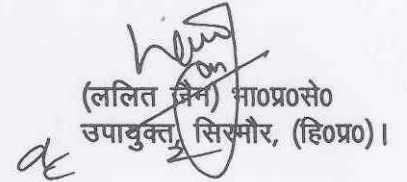 (ललित जैन) भा०प्र०से०
उपायुक्त, सिरमौर, (हि०प्र०)।